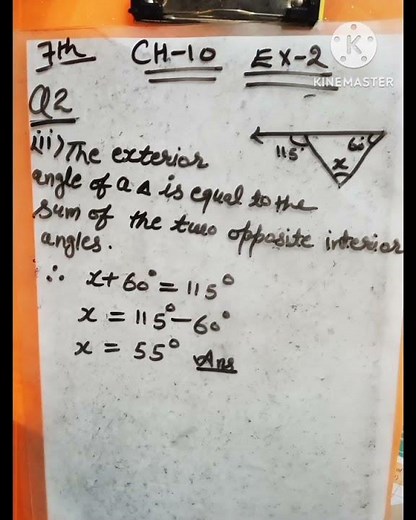 7th CH-10 EX-2
KINEMASTER
Q2
(ii) The exterior
angle of a △ is equal to the
sum of the two opposite interior
angles.
115° 60°
x
∴ x + 60° = 115°
x = 115° - 60°
x = 55° Ans